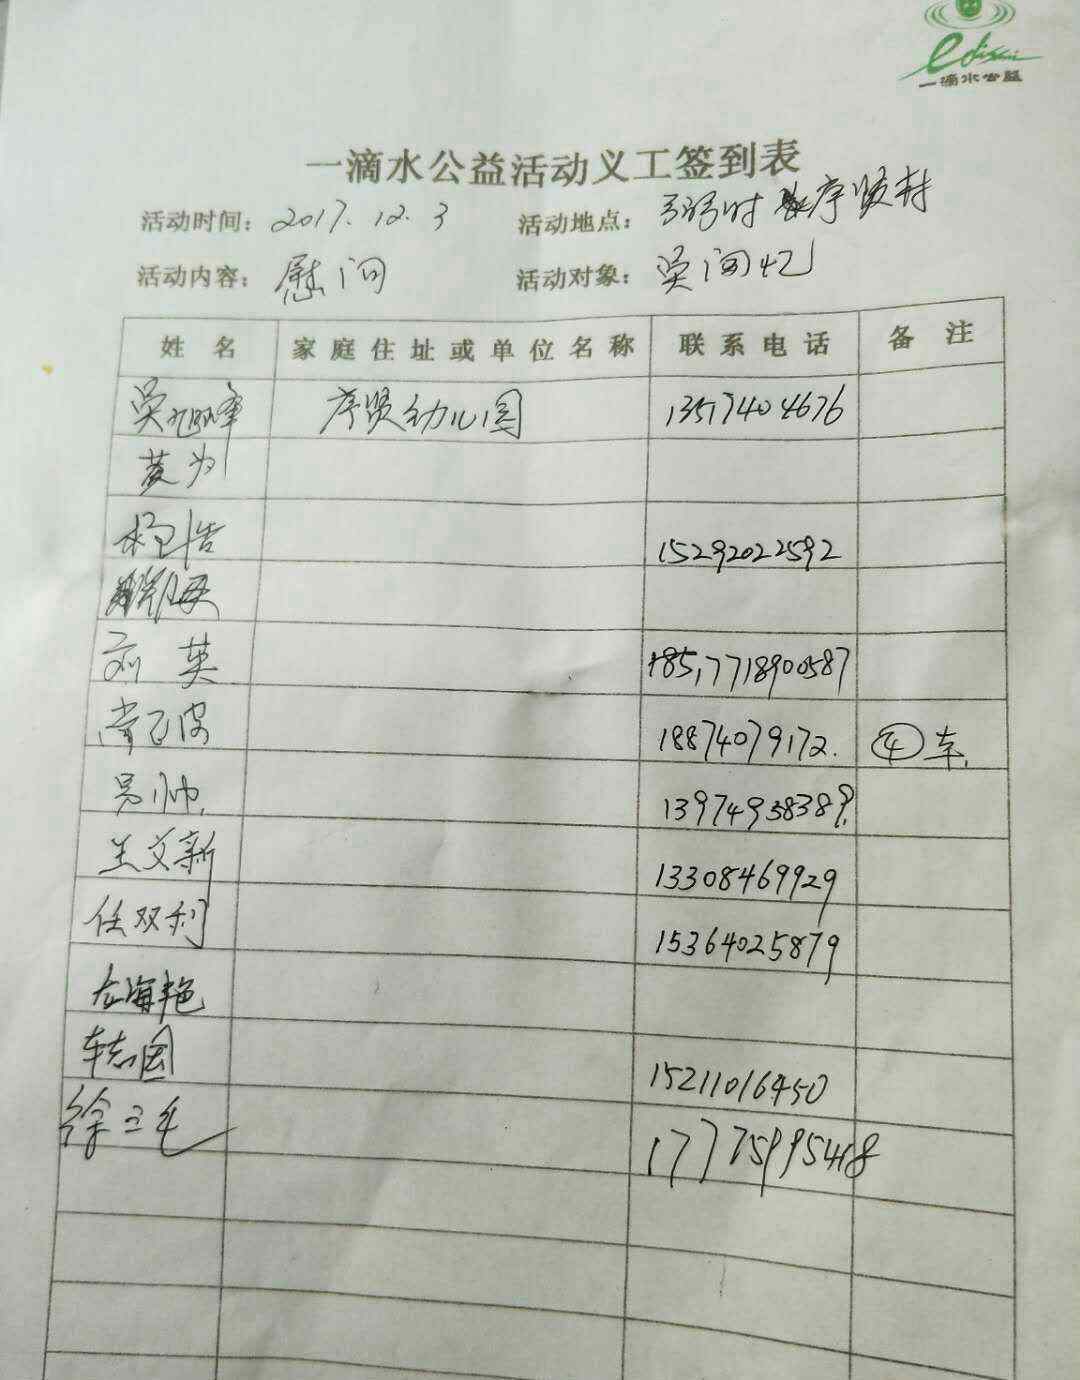 一滴水公益
一滴水公益活动义工签到表
活动时间: 2017.12.3 活动地点: 序贤村
活动内容: 慰问 活动对象: 吴
姓 名 家庭住址或单位名称 联系电话 备 注
吴旭峰 序贤幼儿园 13517404676
黄为
杨浩 15292022592
刘英 17718900587
18874079172. ④车.
易帅. 13974938389.
兰文新 13308469929
任双利 15364025879
左海艳
车志国 15211016450
徐三毛 17775995418